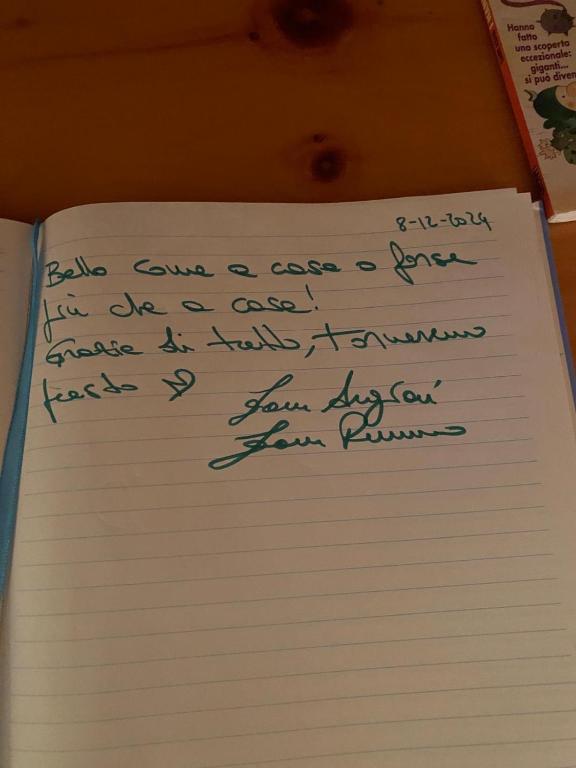 Hanno
fatto
una scoperta
eccezionale:
giganti...
si può diven
8-12-2024
Bello come a casa o forse
più che a casa!
Grazie di tutto, torneremo
presto
Fam
Fam